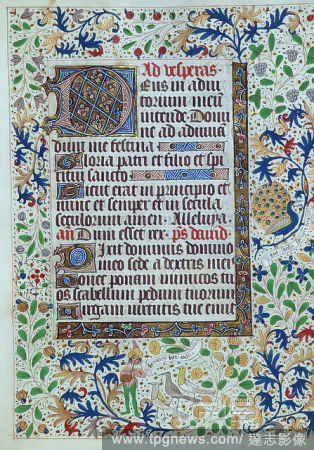 Ad vesperas.
Deus in adiu
torium meum
intende. Domi
ne ad adiuuan
dum me festina
Gloria patri et filio et spi
ritui sancto.
Sicut erat in principio et
nunc et semper et in secula
seculorum amen. Alleluya.
añ Dum esset rex. ps dauid.
Dixit dominus domino
meo sede a dextris meis
Donec ponam inimicos tu
os scabellum pedum tuorum
Virgam uirtutis tue emi
www.tpgnews.com / 達志影像